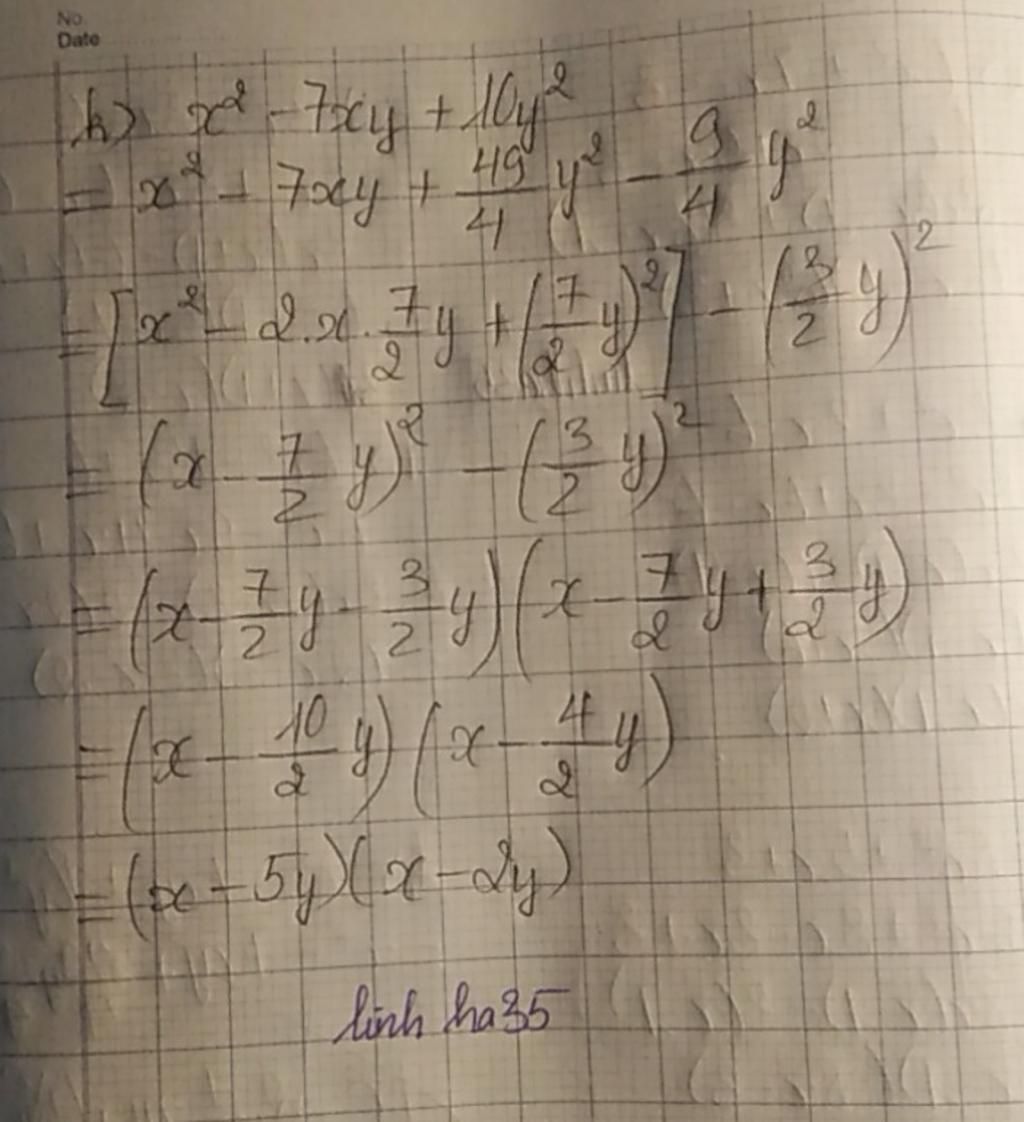 No.
Date
h) x² - 7xy + 10y²
= x² - 7xy + 49/4 y² - 9/4 y²
= [x² - 2.x.7/2 y + (7/2 y)²] - (3/2 y)²
= (x - 7/2 y)² - (3/2 y)²
= (x - 7/2 y - 3/2 y)(x - 7/2 y + 3/2 y)
= (x - 10/2 y)(x - 4/2 y)
= (x - 5y)(x - 2y)
linh ha35